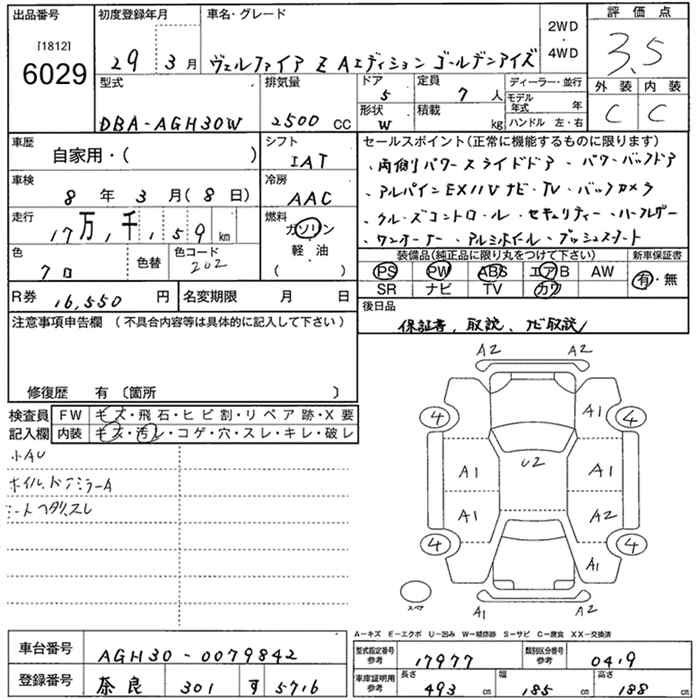 出品番号 初度登録年月 車名・グレード 2WD・4WD 評価点
[1812]
6029 29 3月 ヴェルファイア Z Aエディション ゴールデンアイズ 3.5
型式 排気量 ドア 5 定員 7人 ディーラー・並行 外装 内装
モデル年式 年
DBA-AGH30W 2500 CC 形状 W 積載 kg ハンドル 左・右 C C
車歴 シフト セールスポイント(正常に機能するものに限ります)
自家用・( ) IAT ・両側パワースライドドア・パワーバックドア
車検 冷房 ・アルパインEX11Vナビ・TV・バックカメラ
8年 3月(8日) AAC ・クルーズコントロール・セキュリティー・ハーフレザー
走行 燃料 ・ワンオーナー・アルミホイール・プッシュスタート
17万,千,159km ガソリン・軽油( )
色 色替 色コード 装備品(純正品に限り丸をつけて下さい) 新車保証書
クロ 202 PS PW ABS エアB AW 有・無
SR ナビ TV カワ
R券 16,550円 名変期限 月 日 後日品
注意事項申告欄(不具合内容等は具体的に記入して下さい) 保証書、取説、ナビ取説
修復歴 有〔箇所 〕
検査員記入欄 FW キズ・飛石・ヒビ割・リペア跡・X要
内装 キズ・汚レ・コゲ・穴・スレ・キレ・破レ
小AU
ホイル、ドアミラーA
シートヘタリ、スレ
A2 A2
4 A1 4
A1 U2 A1
A1 A2
4 A1 4
スペア A1 A2
A-キズ E-エクボ U-凹み W-補修跡 S-サビ C-腐食 XX-交換済
車台番号 AGH30-0079842 型式指定番号 参考 17977 類別区分番号 参考 0419
登録番号 奈良 301 す 5716 車庫証明用 参考 長さ 493cm 幅 185cm 高さ 188cm